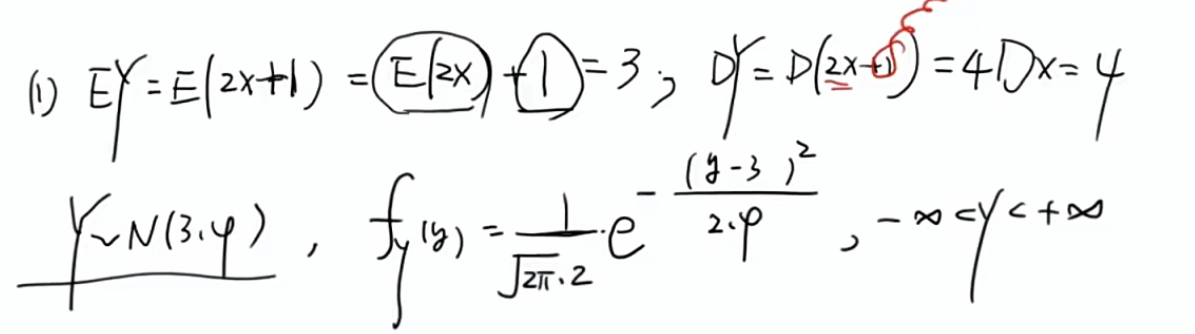 (1) EY = E(2x+1) = E(2x) + 1 = 3 ; DY = D(2x+1) = 4Dx = 4
Y ~ N(3.4) , f_Y(y) = \frac{1}{\sqrt{2π}·2} · e^{-\frac{(y-3)^2}{2·4}} , -∞ < y < +∞